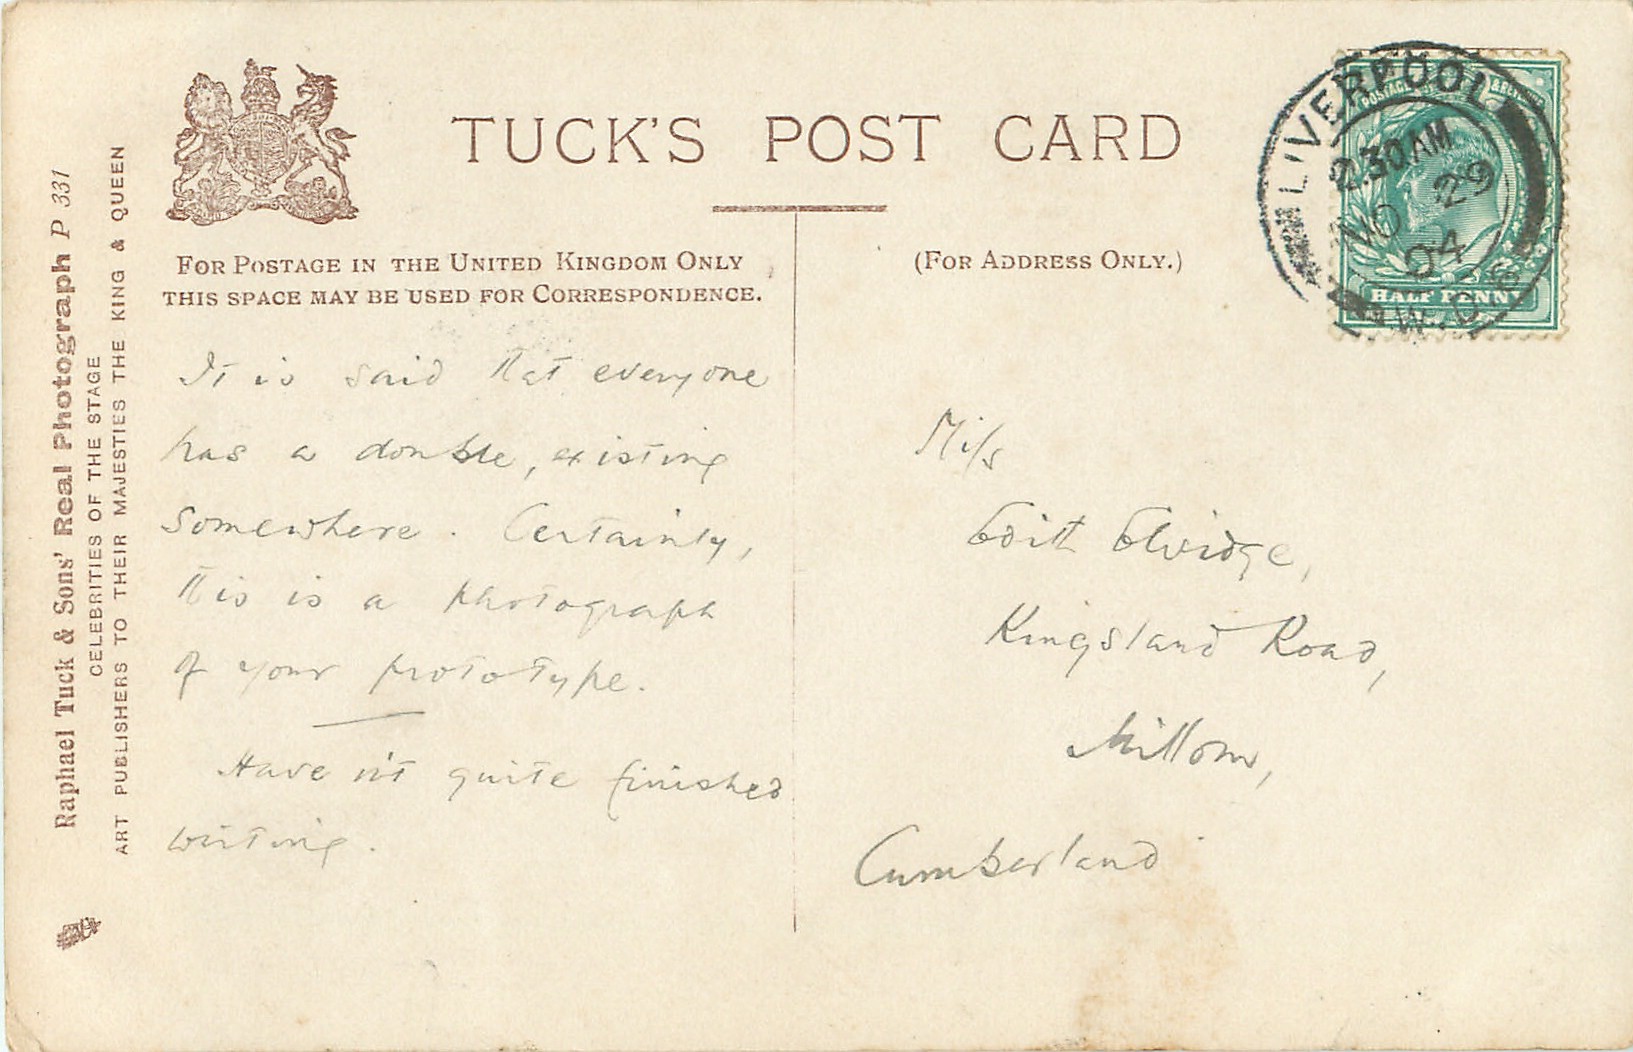 TUCK'S POST CARD
FOR POSTAGE IN THE UNITED KINGDOM ONLY
THIS SPACE MAY BE USED FOR CORRESPONDENCE.
(FOR ADDRESS ONLY.)
Raphael Tuck & Sons' Real Photograph P 331
CELEBRITIES OF THE STAGE
ART PUBLISHERS TO THEIR MAJESTIES THE KING & QUEEN
It is said that everyone
has a double, existing
somewhere. Certainly,
this is a photograph
of your prototype.
Have n't quite finished
writing.
LIVERPOOL
2.30AM
NO 29
04
POSTAGE
HALF PENNY
Miss
Edith Elvidge,
Kingsland Road,
Millom,
Cumberland